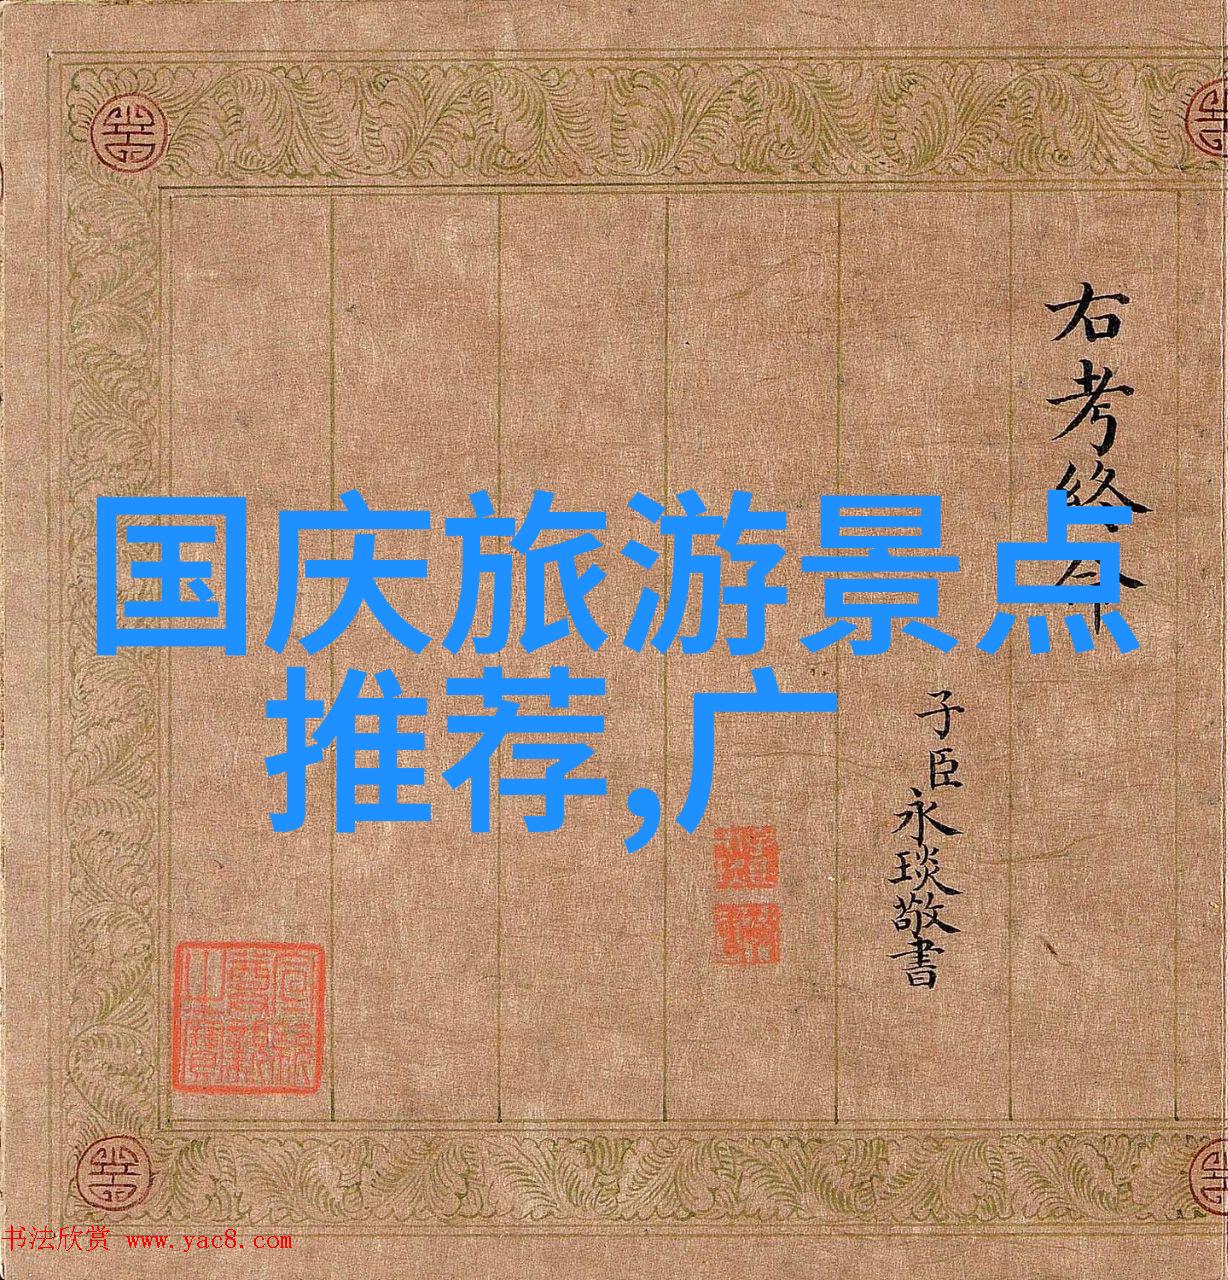 国庆旅游景点
推荐,广
右考终命
子臣永琰敬書
书法欣赏 www.yac8.com